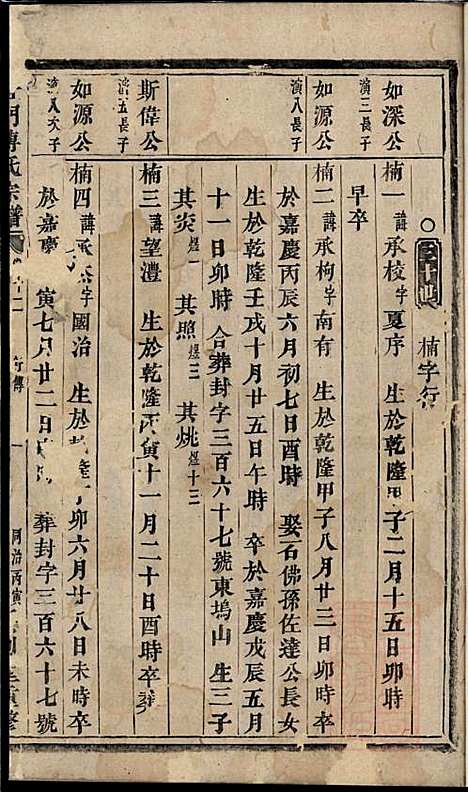 ○ 三十世 楠字行
如深公
演三長子
楠一 講承校 字夏序 生於乾隆甲子二月十五日卯時
早卒
如源公
演八長子
楠二 講承枸 字南有 生於乾隆甲子八月廿三日卯時卒
於嘉慶丙辰六月初七日酉時 娶石佛孫佐達公長女
生於乾隆壬戌十月廿五日午時 卒於嘉慶戊辰五月
十一日卯時 合葬封字三百六十七號東塢山 生三子
其炎 煜一 其照 煜三 其姚 煜十三
斯偉公
演五長子
楠三 講望澧 生於乾隆丙寅十一月二十日酉時卒
如源公
演八次子
楠四 講承 字國治 生於 隆丁卯六月廿八日未時卒
於嘉慶 寅七月廿二日 葬封字三百六十七號
傅氏宗譜 行傳 一 同治丙寅 重修